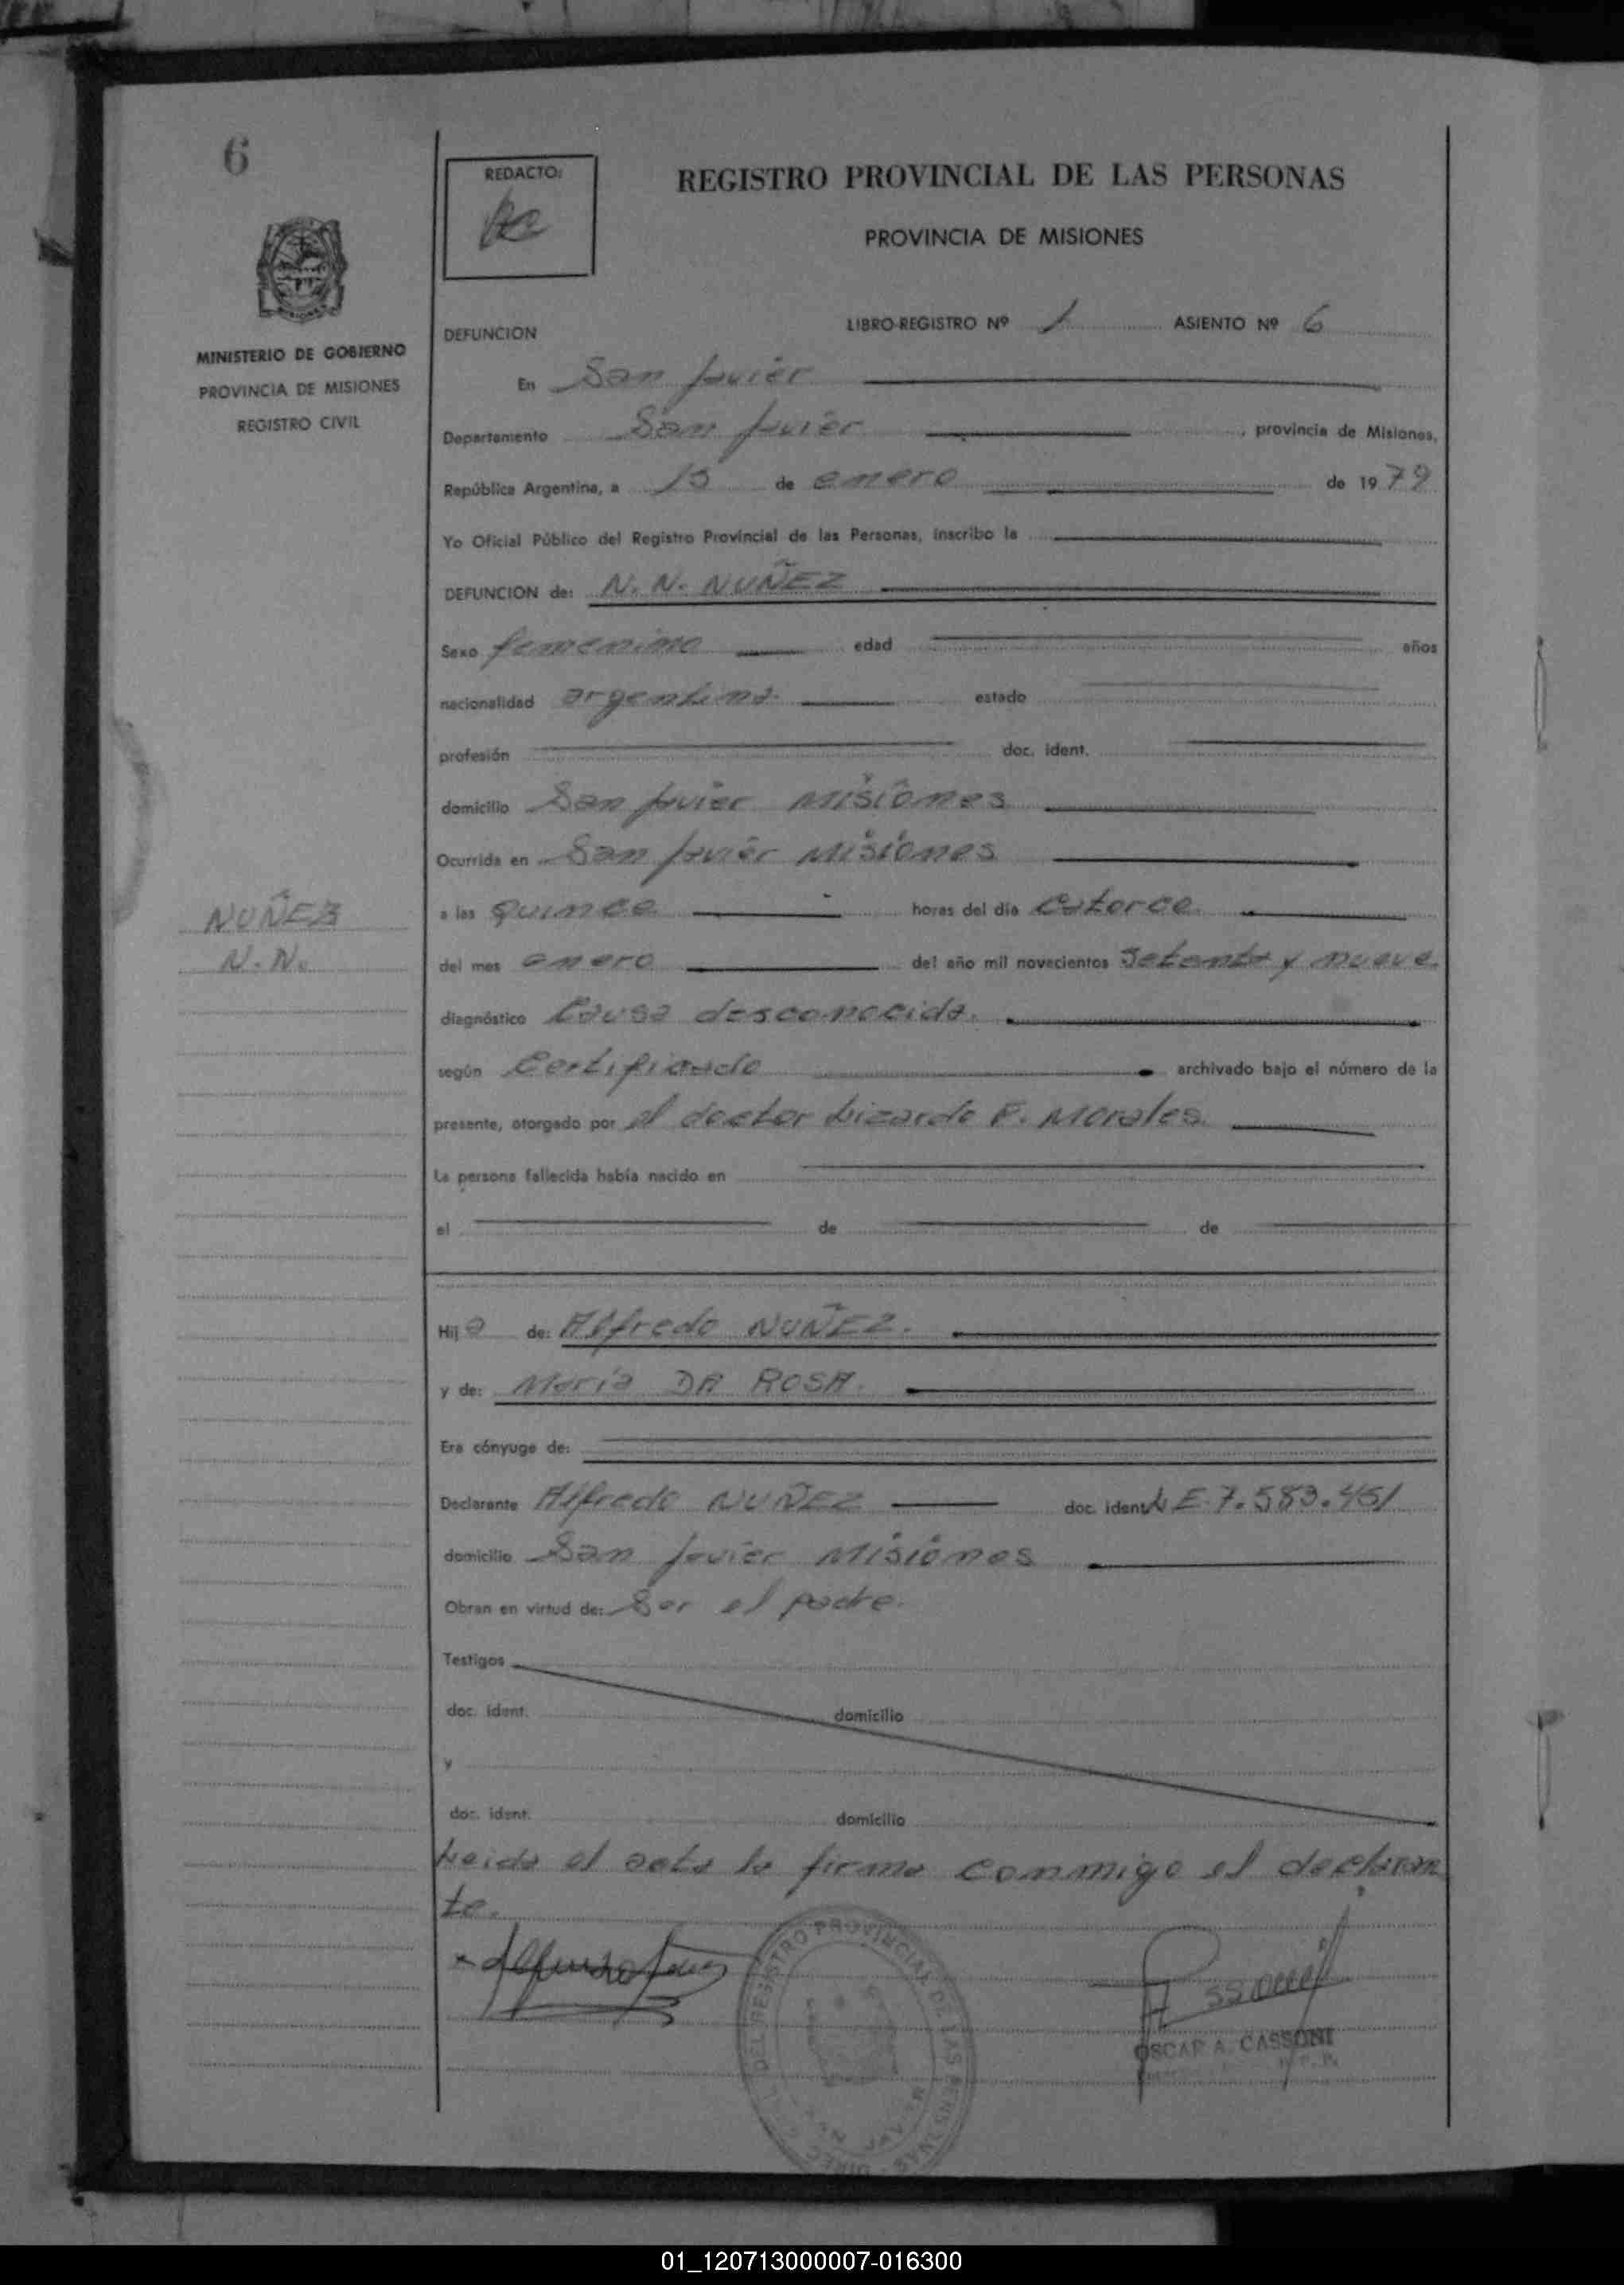 6
REDACTO:
REGISTRO PROVINCIAL DE LAS PERSONAS
PROVINCIA DE MISIONES
MINISTERIO DE GOBIERNO
PROVINCIA DE MISIONES
REGISTRO CIVIL
DEFUNCION LIBRO-REGISTRO Nº 1 ASIENTO Nº 6
En San Javier
Departamento San Javier, provincia de Misiones,
República Argentina, a 15 de enero de 1979
Yo Oficial Público del Registro Provincial de las Personas, inscribo la
DEFUNCION de: N. N. NUÑEZ
Sexo femenino edad años
nacionalidad argentina. estado
profesión doc. ident.
domicilio San Javier Misiones
Ocurrida en San Javier Misiones
NUÑEZ
N. N.
a las quince horas del día catorce
del mes enero del año mil novecientos setenta y nueve.
diagnóstico Causa desconocida.
según Certificado archivado bajo el número de la
presente, otorgado por el doctor Lizardo F. Morales.
La persona fallecida había nacido en
el de de
Hija de: Alfredo NUÑEZ.
y de: María DA ROSA.
Era cónyuge de:
Declarante Alfredo NUÑEZ doc. ident. L E 7.583.451
domicilio San Javier Misiones
Obran en virtud de: Ser el padre.
Testigos
doc. ident. domicilio
y
doc. ident. domicilio
Leida el acta la firma conmigo el declaran
te.
DEL REGISTRO PROVINCIAL DE LAS PERSONAS
OSCAR A. CASSONI
01_120713000007-016300